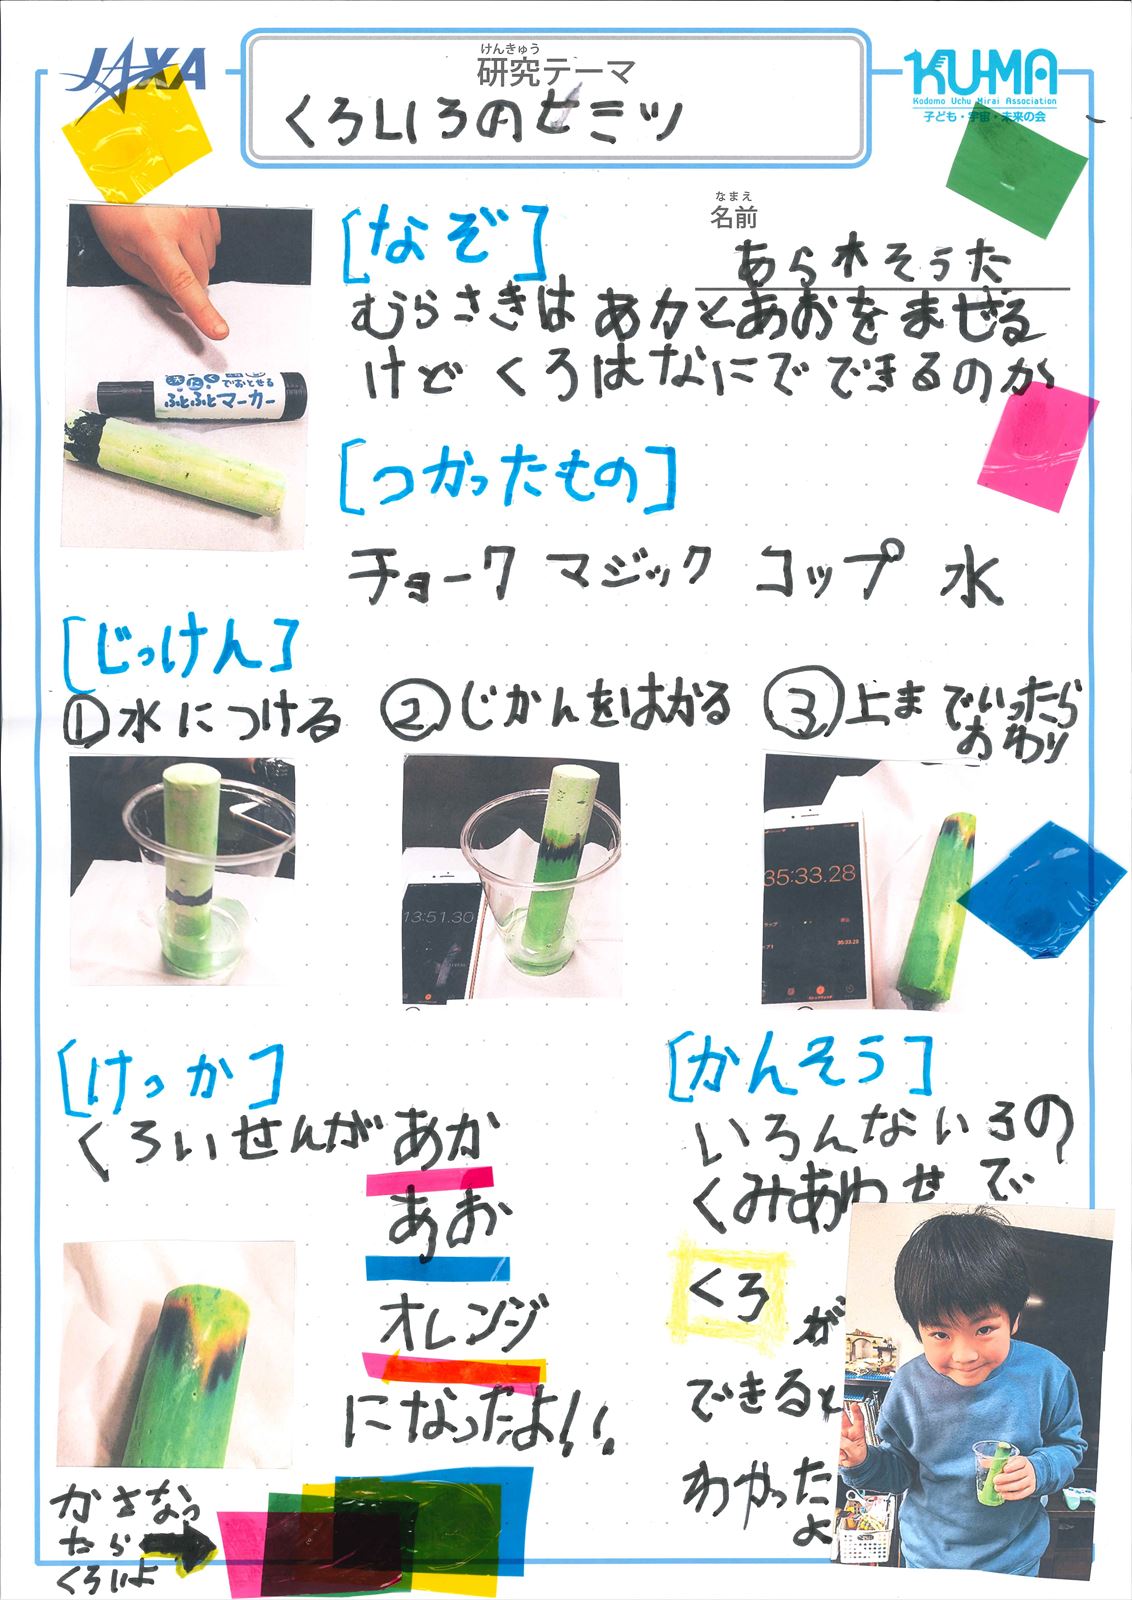 JAXA
けんきゅう
研究テーマ
くろいろのヒミツ
KU-MA
Kodomo Uchu Mirai Association
子ども・宇宙・未来の会
なまえ
名前
あら木そうた
[なぞ]
むらさきは あかとあおをまぜる
けど くろはなにでできるのか
でおとせる
ふとふとマーカー
[つかったもの]
チョーク マジック コップ 水
[じっけん]
①水につける
②じかんをはかる
③上までいったら
おわり
13:51.30
35:33.28
[けっか]
くろいせんが あか
あお
オレンジ
になったよ!!
かさなっ
たら
くろいよ
[かんそう]
いろんないろの
くみあわせで
くろが
できると
わかった
よ